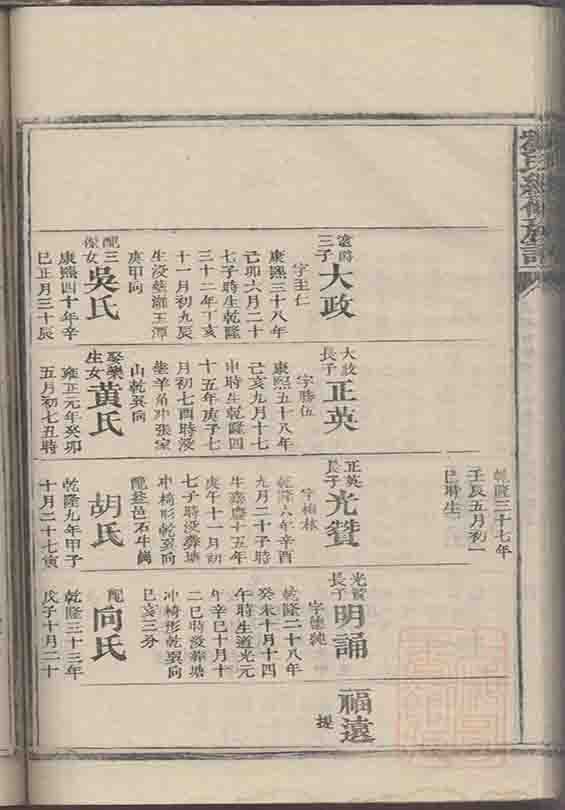 乾隆三十七年
壬辰五月初一
巳時生
遠時
三子
大政
字主仁
康熙三十八年
己卯六月二十
七子時生乾隆
三十二年丁亥
十一月初九辰
庚甲向
配三
傑女
吳氏
康熙四十年辛
巳正月三十辰
大政
長子
正英
字勝伍
康熙五十八年
己亥九月十七
申時生乾隆四
十五年庚子七
月初七酉時沒
塟羊角冲張家
山乾巽向
娶樂
生女
黃氏
雍正元年癸卯
五月初七丑時
正英
長子
光贊
字栢林
乾隆六年辛酉
九月二十子時
生嘉慶十五年
庚午十一月初
七子時沒葬塘
冲椅形乾巽向
胡氏
乾隆九年甲子
十月二十七寅
光贊
長子
明誦
字德純
乾隆二十八年
癸未十月十四
午時生道光元
年辛巳十月十
二巳時沒葬塘
冲椅形乾巽向
巳亥三分
配
向氏
乾隆三十三年
戊子十月二十
福遠
提